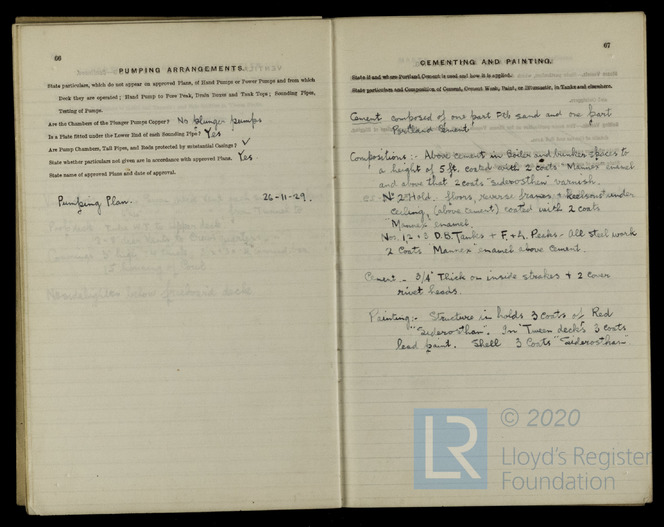 66
PUMPING ARRANGEMENTS.
State particulars, which do not appear on approved Plans, of Hand Pumps or Power Pumps and from which
Deck they are operated; Hand Pump to Fore Peak, Drain Boxes and Tank Tops; Sounding Pipes,
Testing of Pumps.
Are the Chambers of the Plunger Pumps Copper? No plunger pumps
Is a Plate fitted under the Lower End of each Sounding Pipe? Yes
Are Pump Chambers, Tail Pipes, and Rods protected by substantial Casings? ✓
State whether particulars not given are in accordance with approved Plans. Yes.
State name of approved Plans and date of approval.
Pumping Plan. 26-11-29.
No sidelights below freeboard deck
67
CEMENTING AND PAINTING.
State if and where Portland Cement is used and how it is applied.
State particulars and Composition of Cement, Cement Wash, Paint, or Bitumastic, in Tanks and elsewhere.
Cement composed of one part sand and one part
Portland Cement
Compositions :- Above cement in Boiler and bunker spaces to
a height of 5 ft. coated with 2 coats "Mannex" enamel
and above that 2 coats "siderosthen" varnish.
No 2 Hold. floors, reverse frames & keelsons under
ceiling, (above cement) coated with 2 coats
"Mannex" enamel.
Nos 1, 2 & 3 D.B. Tanks + F. & A. Peaks - All steel work
2 coats "Mannex" enamel above cement.
Cement - 3/4" thick on inside strakes + 2 cover
rivet heads.
Painting:- Structure in holds 3 coats of Red
"Siderosthan". In 'Tween decks 3 coats
lead paint. Shell 3 Coats "Siderosthan
LR
© 2020
Lloyd's Register
Foundation